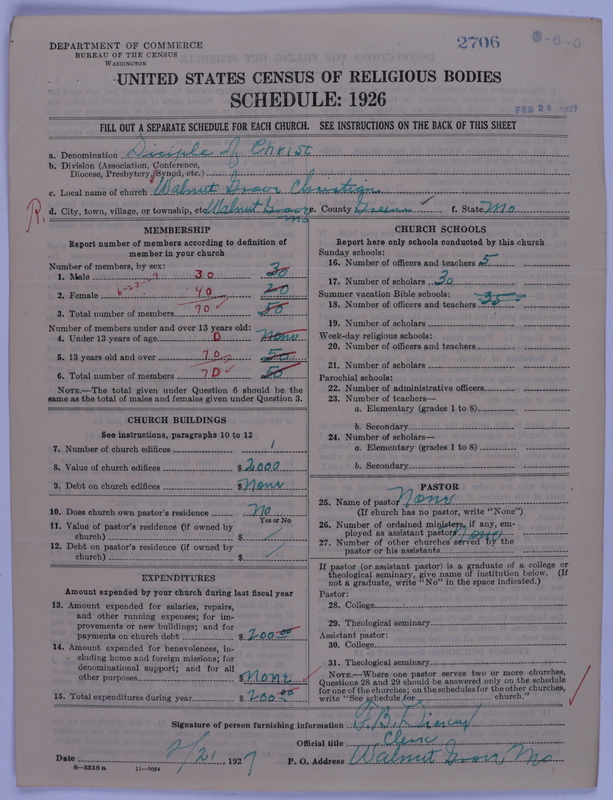 DEPARTMENT OF COMMERCE
BUREAU OF THE CENSUS
WASHINGTON
2706
0-6-0
UNITED STATES CENSUS OF RELIGIOUS BODIES
SCHEDULE: 1926
FEB 24 1927
FILL OUT A SEPARATE SCHEDULE FOR EACH CHURCH. SEE INSTRUCTIONS ON THE BACK OF THIS SHEET
a. Denomination Disciple of Christ
b. Division (Association, Conference, Diocese, Presbytery, Synod, etc.)
c. Local name of church Walnut Grove Christian
d. City, town, village, or township, etc. Walnut Grove Mo e. County Greene f. State Mo
R.
MEMBERSHIP
Report number of members according to definition of member in your church
Number of members, by sex:
1. Male 30 30
2. Female 6-23-27 40 20
3. Total number of members 70 50
Number of members under and over 13 years old:
4. Under 13 years of age 0 None
5. 13 years old and over 70 50
6. Total number of members 70 50
NOTE.—The total given under Question 6 should be the same as the total of males and females given under Question 3.
CHURCH BUILDINGS
See instructions, paragraphs 10 to 12
7. Number of church edifices 1
8. Value of church edifices $2000
9. Debt on church edifices $None
10. Does church own pastor's residence? No
Yes or No
11. Value of pastor's residence (if owned by church) $
12. Debt on pastor's residence (if owned by church) $
EXPENDITURES
Amount expended by your church during last fiscal year
13. Amount expended for salaries, repairs, and other running expenses; for improvements or new buildings; and for payments on church debt $200.00
14. Amount expended for benevolences, including home and foreign missions; for denominational support; and for all other purposes $None
15. Total expenditures during year $200.00
CHURCH SCHOOLS
Report here only schools conducted by this church
Sunday schools:
16. Number of officers and teachers 5
17. Number of scholars 30
Summer vacation Bible schools: 35
18. Number of officers and teachers
19. Number of scholars
Week-day religious schools:
20. Number of officers and teachers
21. Number of scholars
Parochial schools:
22. Number of administrative officers
23. Number of teachers—
a. Elementary (grades 1 to 8)
b. Secondary
24. Number of scholars—
a. Elementary (grades 1 to 8)
b. Secondary
PASTOR
25. Name of pastor None
(If church has no pastor, write "None")
26. Number of ordained ministers, if any, employed as assistant pastors None
27. Number of other churches served by the pastor or his assistants
If pastor (or assistant pastor) is a graduate of a college or theological seminary, give name of institution below. (If not a graduate, write "No" in the space indicated.)
Pastor:
28. College
29. Theological seminary
Assistant pastor:
30. College
31. Theological seminary
NOTE.—Where one pastor serves two or more churches, Questions 28 and 29 should be answered only on the schedule for one of the churches; on the schedules for the other churches, write "See schedule for church."
Signature of person furnishing information
Official title Clerk
Date 2/21, 1927 P. O. Address Walnut Grove Mo
8-5518 a 11-9084